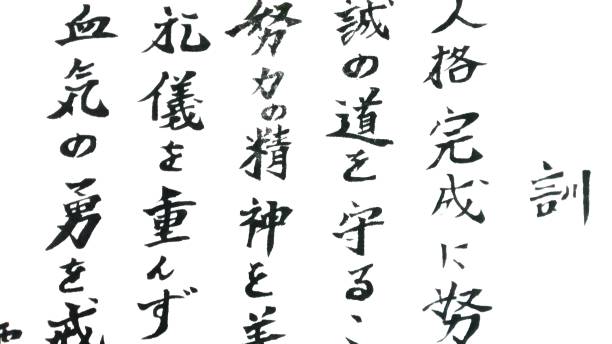 訓
人格完成に努
誠の道を守る
努力の精神を
礼儀を重んず
血気の勇を戒